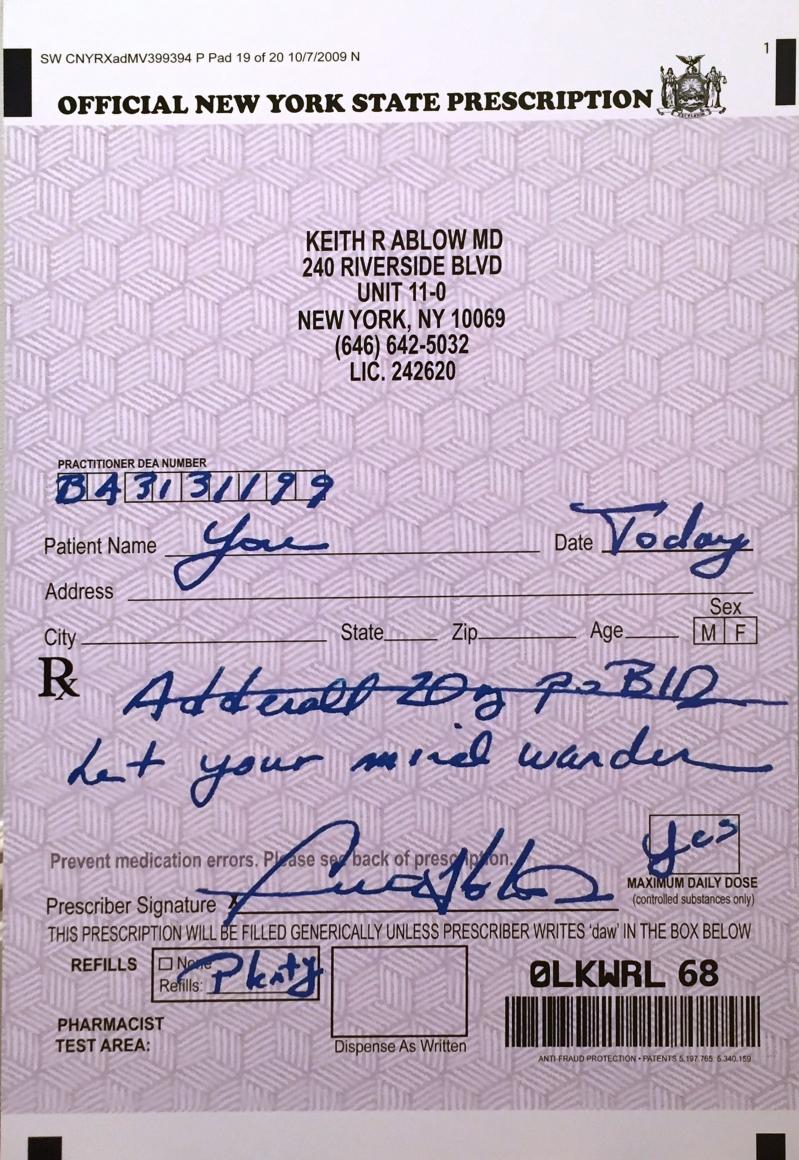 SW CNYRXadMV399394 P Pad 19 of 20 10/7/2009 N
1
OFFICIAL NEW YORK STATE PRESCRIPTION
EXCELSIOR
KEITH R ABLOW MD
240 RIVERSIDE BLVD
UNIT 11-0
NEW YORK, NY 10069
(646) 642-5032
LIC. 242620
PRACTITIONER DEA NUMBER
BA3131199
Patient Name You Date Today
Address
Sex
City State Zip Age M F
Rx Adderall 20mg po BID
Let your mind wander
Yes
Prevent medication errors. Please see back of prescription.
MAXIMUM DAILY DOSE
(controlled substances only)
Prescriber Signature X
THIS PRESCRIPTION WILL BE FILLED GENERICALLY UNLESS PRESCRIBER WRITES 'daw' IN THE BOX BELOW
REFILLS None
Refills: Plenty
0LKWRL 68
PHARMACIST
TEST AREA:
Dispense As Written
ANTI-FRAUD PROTECTION • PATENTS 5,197,765; 5,340,159